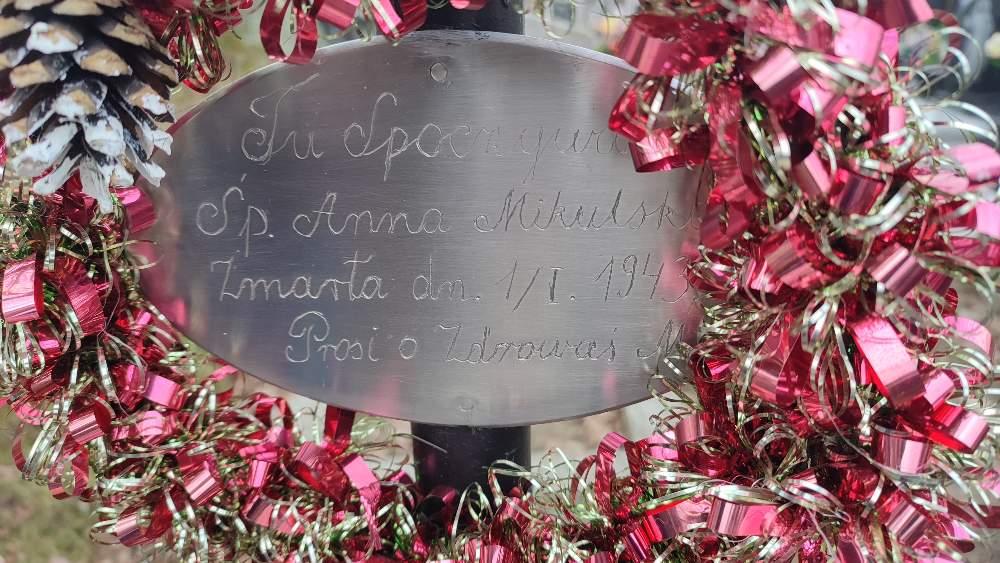 Tu Spoczywa
Śp. Anna Mikulsk
Zmarła dn. 1/I. 1943
Prosi o Zdrowaś M